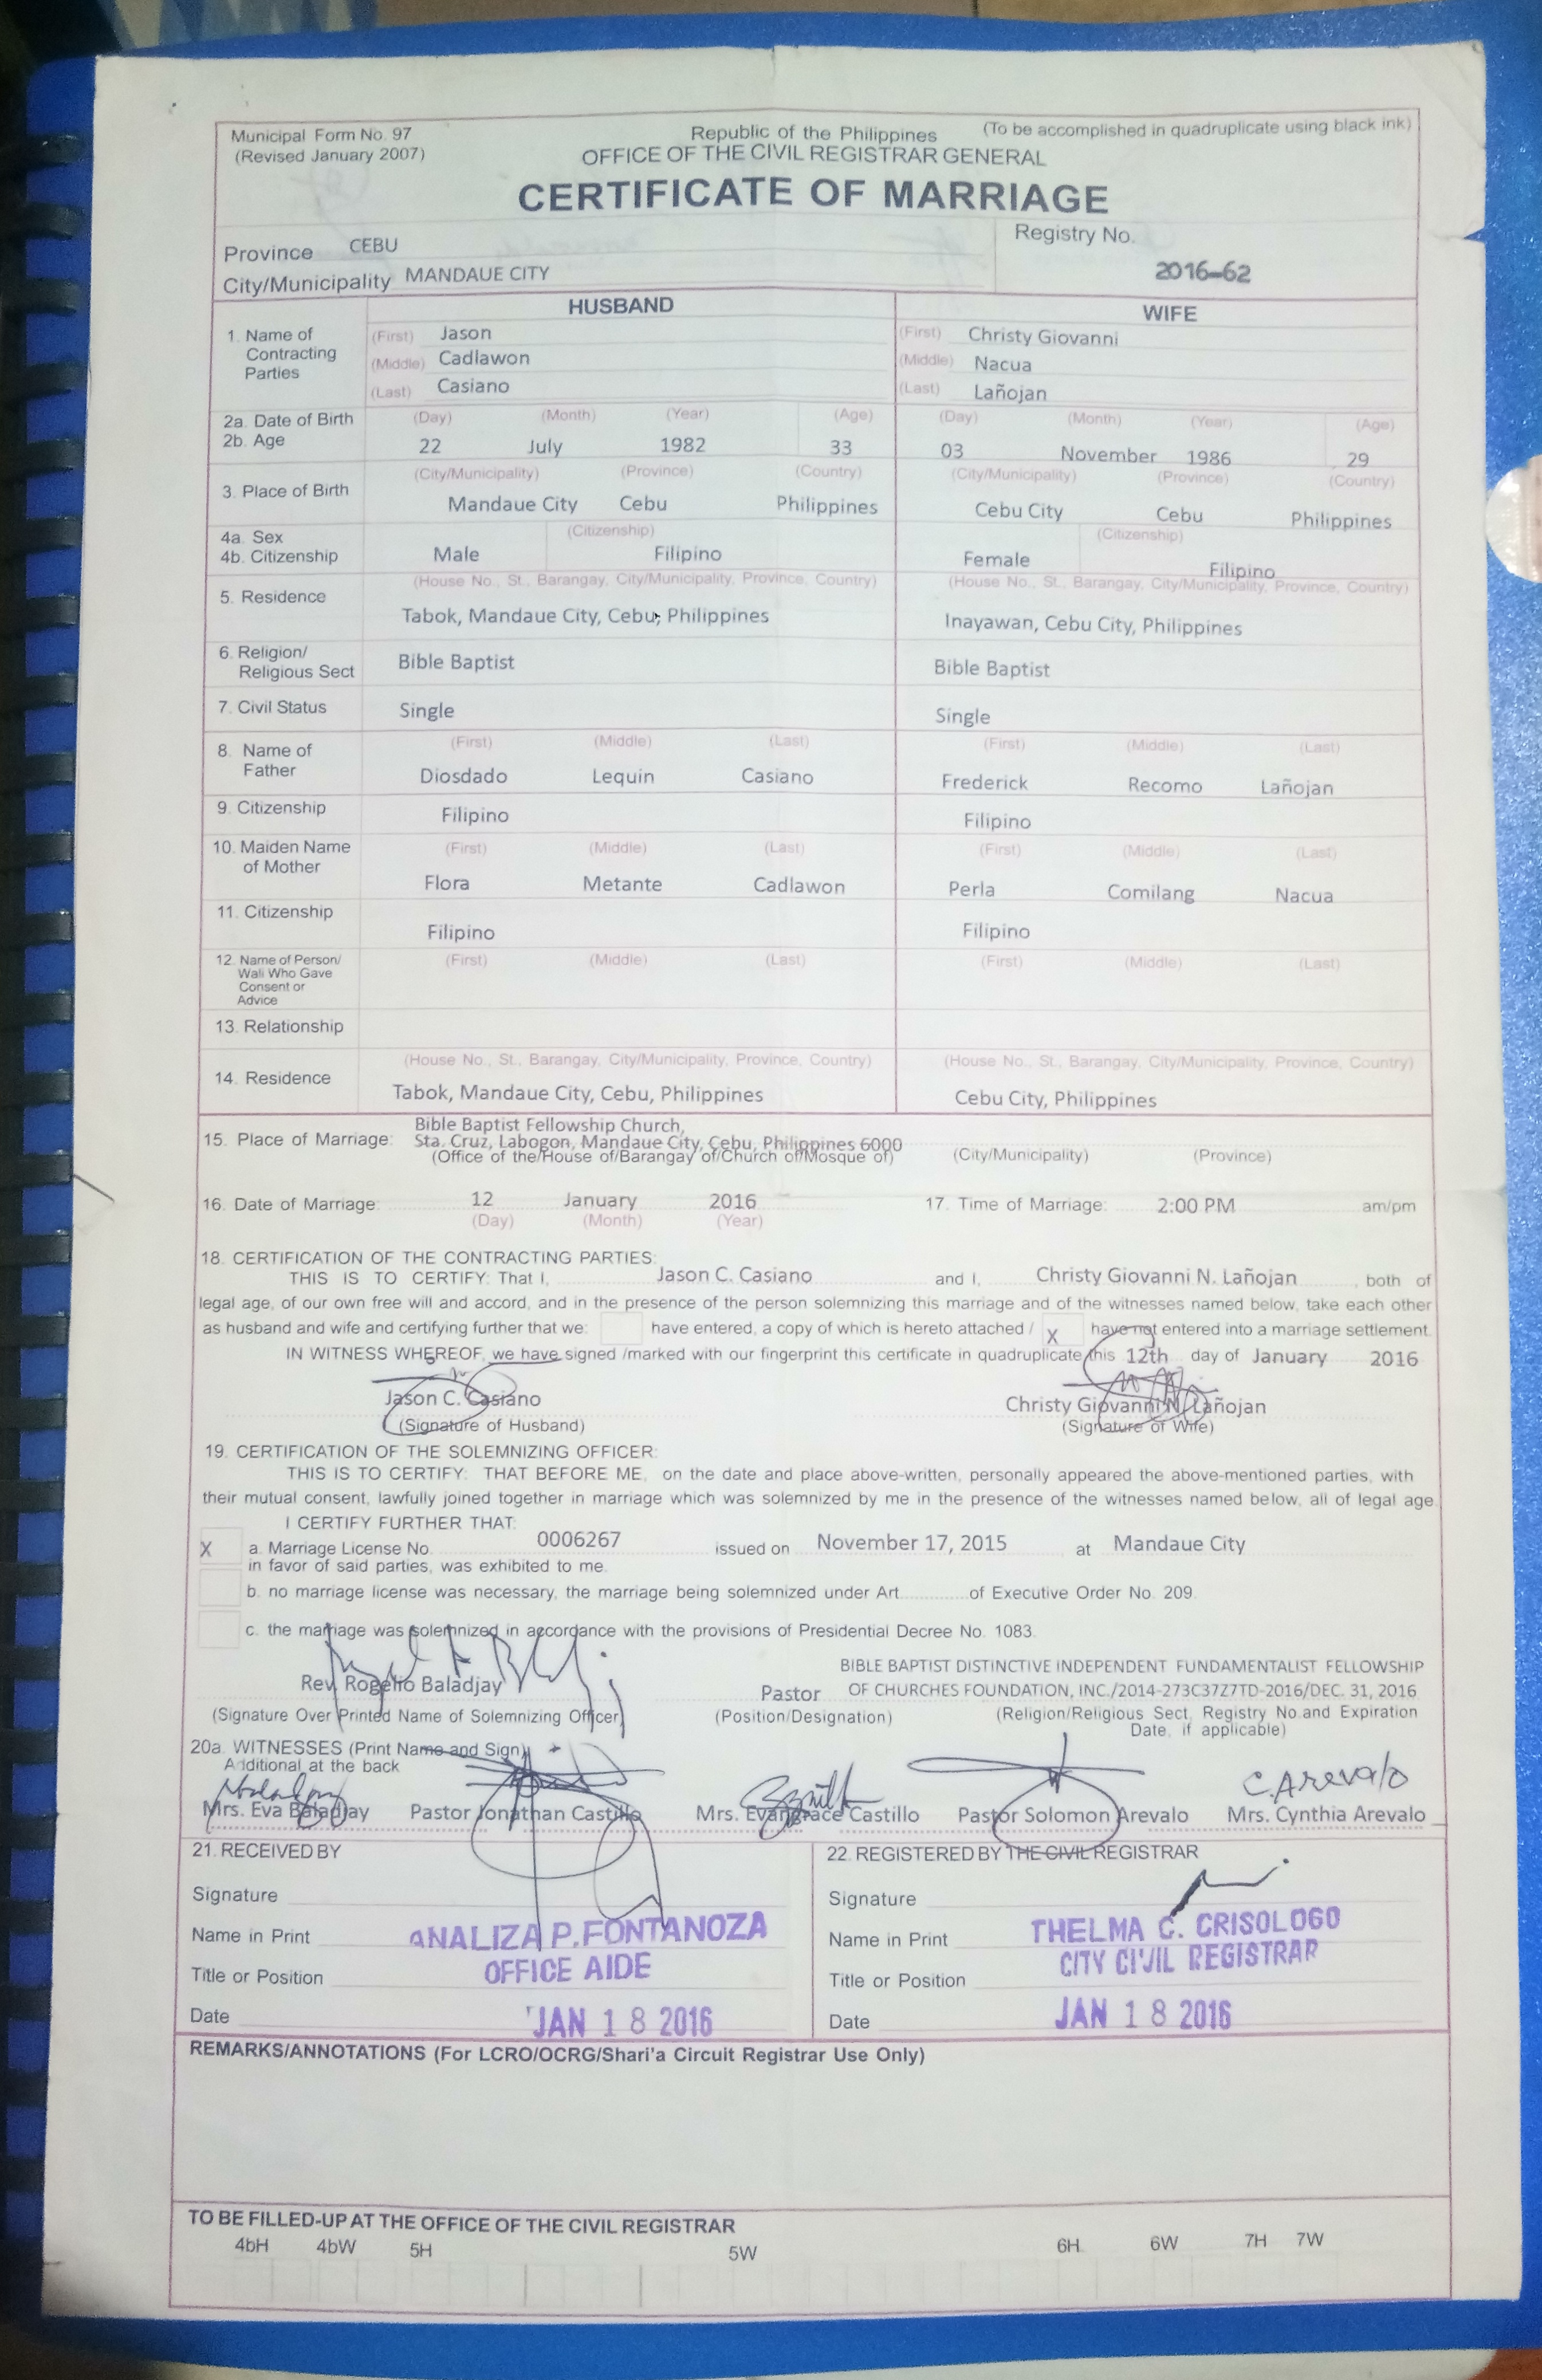 Municipal Form No. 97
(Revised January 2007)
Republic of the Philippines
(To be accomplished in quadruplicate using black ink)
OFFICE OF THE CIVIL REGISTRAR GENERAL
CERTIFICATE OF MARRIAGE
Province CEBU
City/Municipality MANDAUE CITY
Registry No.
2016-62
HUSBAND WIFE
1. Name of Contracting Parties
(First) Jason (First) Christy Giovanni
(Middle) Cadlawon (Middle) Nacua
(Last) Casiano (Last) Lañojan
2a. Date of Birth (Day) (Month) (Year) (Age) (Day) (Month) (Year) (Age)
2b. Age 22 July 1982 33 03 November 1986 29
(City/Municipality) (Province) (Country) (City/Municipality) (Province) (Country)
3. Place of Birth Mandaue City Cebu Philippines Cebu City Cebu Philippines
4a. Sex (Citizenship) (Citizenship)
4b. Citizenship Male Filipino Female Filipino
(House No., St., Barangay, City/Municipality, Province, Country) (House No., St., Barangay, City/Municipality, Province, Country)
5. Residence Tabok, Mandaue City, Cebu, Philippines Inayawan, Cebu City, Philippines
6. Religion/ Religious Sect Bible Baptist Bible Baptist
7. Civil Status Single Single
8. Name of Father (First) (Middle) (Last) (First) (Middle) (Last)
Diosdado Lequin Casiano Frederick Recomo Lañojan
9. Citizenship Filipino Filipino
10. Maiden Name of Mother (First) (Middle) (Last) (First) (Middle) (Last)
Flora Metante Cadlawon Perla Comilang Nacua
11. Citizenship Filipino Filipino
12. Name of Person/ Wali Who Gave Consent or Advice (First) (Middle) (Last) (First) (Middle) (Last)
13. Relationship
(House No., St., Barangay, City/Municipality, Province, Country) (House No., St., Barangay, City/Municipality, Province, Country)
14. Residence Tabok, Mandaue City, Cebu, Philippines Cebu City, Philippines
Bible Baptist Fellowship Church,
15. Place of Marriage: Sta. Cruz, Labogon, Mandaue City, Cebu, Philippines 6000
(Office of the/House of/Barangay of/Church of/Mosque of) (City/Municipality) (Province)
16. Date of Marriage: 12 January 2016 17. Time of Marriage: 2:00 PM am/pm
(Day) (Month) (Year)
18. CERTIFICATION OF THE CONTRACTING PARTIES:
THIS IS TO CERTIFY: That I, Jason C. Casiano and I, Christy Giovanni N. Lañojan, both of
legal age, of our own free will and accord, and in the presence of the person solemnizing this marriage and of the witnesses named below, take each other
as husband and wife and certifying further that we: have entered, a copy of which is hereto attached / X have not entered into a marriage settlement.
IN WITNESS WHEREOF, we have signed /marked with our fingerprint this certificate in quadruplicate this 12th day of January 2016
Jason C. Casiano Christy Giovanni N. Lañojan
(Signature of Husband) (Signature of Wife)
19. CERTIFICATION OF THE SOLEMNIZING OFFICER:
THIS IS TO CERTIFY: THAT BEFORE ME, on the date and place above-written, personally appeared the above-mentioned parties, with
their mutual consent, lawfully joined together in marriage which was solemnized by me in the presence of the witnesses named below, all of legal age.
I CERTIFY FURTHER THAT:
X a. Marriage License No. 0006267 issued on November 17, 2015 at Mandaue City
in favor of said parties, was exhibited to me.
b. no marriage license was necessary, the marriage being solemnized under Art. of Executive Order No. 209.
c. the marriage was solemnized in accordance with the provisions of Presidential Decree No. 1083.
BIBLE BAPTIST DISTINCTIVE INDEPENDENT FUNDAMENTALIST FELLOWSHIP
Rev. Rogelio Baladjay Pastor OF CHURCHES FOUNDATION, INC./2014-273C37Z7TD-2016/DEC. 31, 2016
(Signature Over Printed Name of Solemnizing Officer) (Position/Designation) (Religion/Religious Sect, Registry No.and Expiration
Date, if applicable)
20a. WITNESSES (Print Name and Sign)
Additional at the back
C. Arevalo
Mrs. Eva Baladjay Pastor Jonathan Castillo Mrs. Evangrace Castillo Pastor Solomon Arevalo Mrs. Cynthia Arevalo
21. RECEIVED BY 22. REGISTERED BY THE CIVIL REGISTRAR
Signature Signature
Name in Print ANALIZA P. FONTANOZA Name in Print THELMA C. CRISOLOGO
Title or Position OFFICE AIDE Title or Position CITY CIVIL REGISTRAR
Date JAN 18 2016 Date JAN 18 2016
REMARKS/ANNOTATIONS (For LCRO/OCRG/Shari'a Circuit Registrar Use Only)
TO BE FILLED-UP AT THE OFFICE OF THE CIVIL REGISTRAR
4bH 4bW 5H 5W 6H 6W 7H 7W